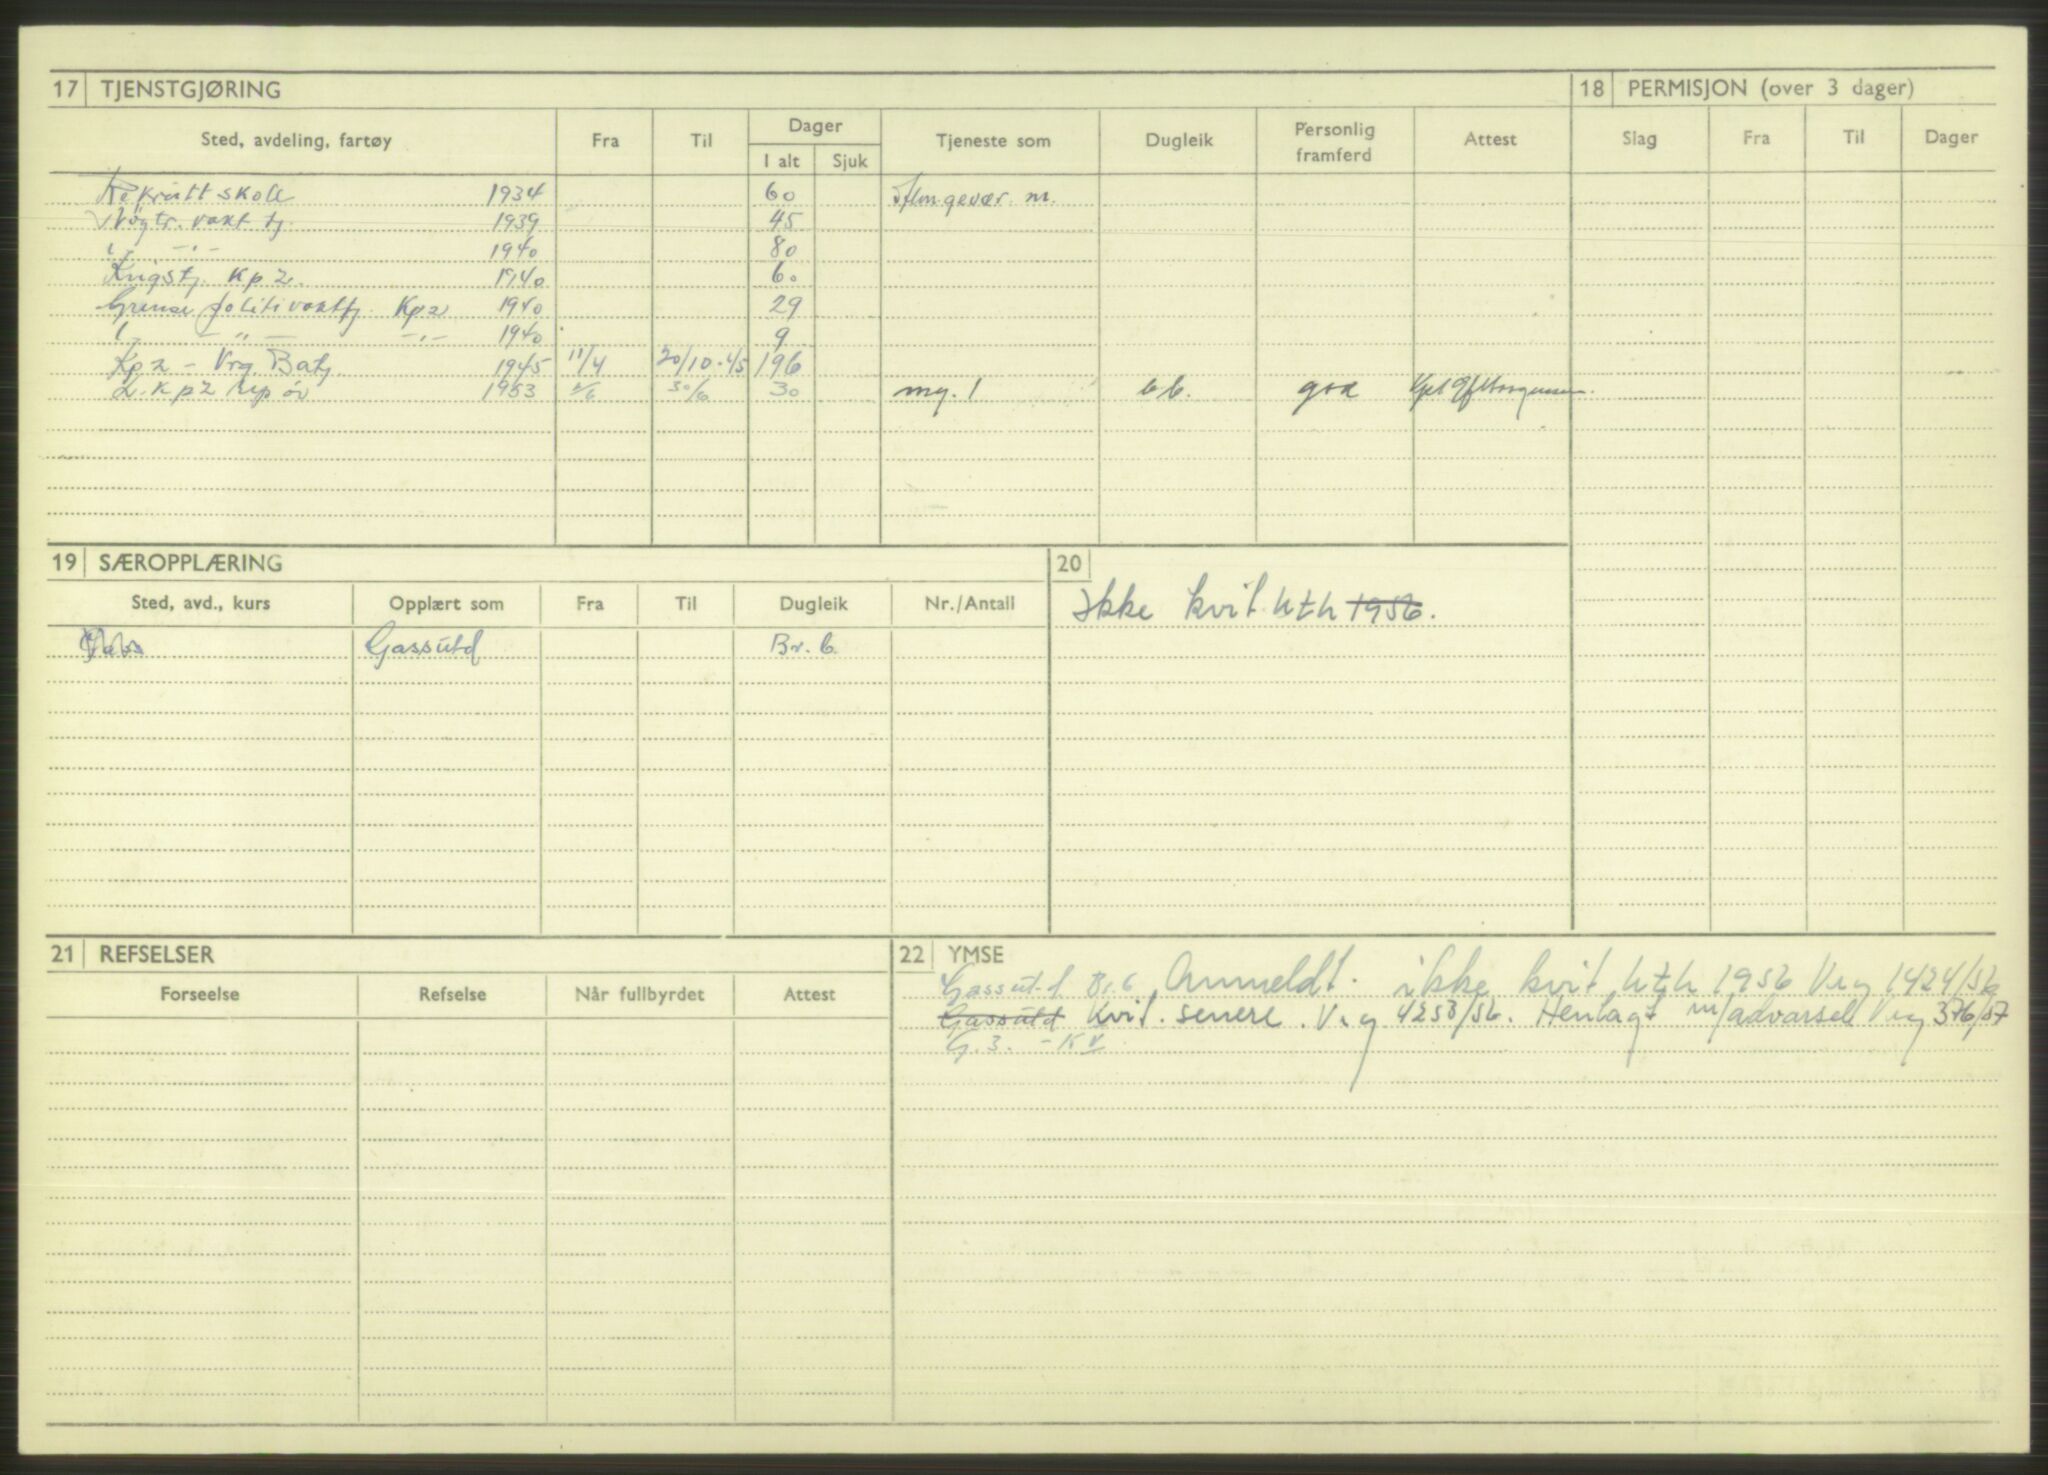 17 TJENSTGJØRING
18 PERMISJON (over 3 dager)
Sted, avdeling, fartøy Fra Til Dager I alt Sjuk Tjeneste som Dugleik Personlig framferd Attest
Slag Fra Til Dager
Rekruttskole 1934 60
Nøytr. vakt tj. 1939 45
— " — 1940 80
Krigstj. Kp 2. 1940 60
Grense politivakttj. Kp 2 1940 29
— " — — " — 1940 9
Kp 2 - Vrg. Batj. 1945 11/4 20/10-45 196
L. kp 2 rep øv 1953 1/6 30/6 30 mg. 1 b b. god
19 SÆROPPLÆRING
20
Sted, avd., kurs Opplært som Fra Til Dugleik Nr./Antall
Ikke kvit. h t h 1956.
Gassutd Br. b.
21 REFSELSER
22 YMSE
Forseelse Refselse Når fullbyrdet Attest
Gassutd Br. b Anmeldt. ikke kvit h t h 1956 V rg 1424/56
Gassutd Kvit. senere. V rg 4253/56. Henlagt m/advarsel V rg 376/57
G. 3. - K V